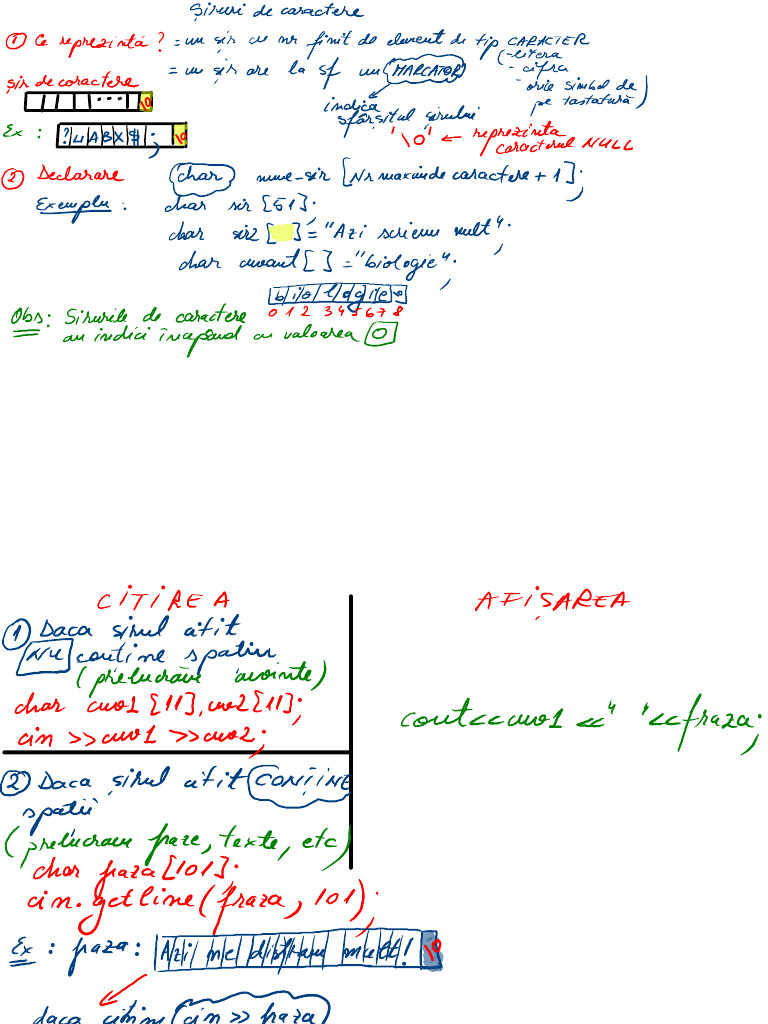 Șiruri de caractere
① Ce reprezintă ? = un șir cu nr finit de element de tip CARACTER
(-litera
- cifra
- orice simbol de pe tastatură)
= un șir are la sf un MARCATOR
indica sfârșitul șirului
'\0' ← reprezinta caracterul NULL
șir de caractere
... \0
Ex : ? ␣ A B X $ ; \0
② Declarare char nume-sir [Nr maxim de caractere + 1];
Exemplu : char sir [51];
char sir2 [ ] = "Azi scriem mult";
char cuvant [ ] = "biologie";
b i o l o g i e
0 1 2 3 4 5 6 7 8
Obs: Sirurile de caractere
au indici începând cu valoarea 0
CITIREA
① Daca sirul citit
NU contine spatiu
(prelucrăm cuvinte)
char cuv1 [11], cuv2 [11];
cin >> cuv1 >> cuv2;
② Daca șirul citit CONȚINE
spatii
(prelucram fraze, texte, etc)
char fraza [101];
cin.getline(fraza, 101);
Ex : fraza: Azi ne distram mult! \0
daca citim cin >> fraza
AFIȘAREA
cout<<cuv1 <<" "<<fraza;